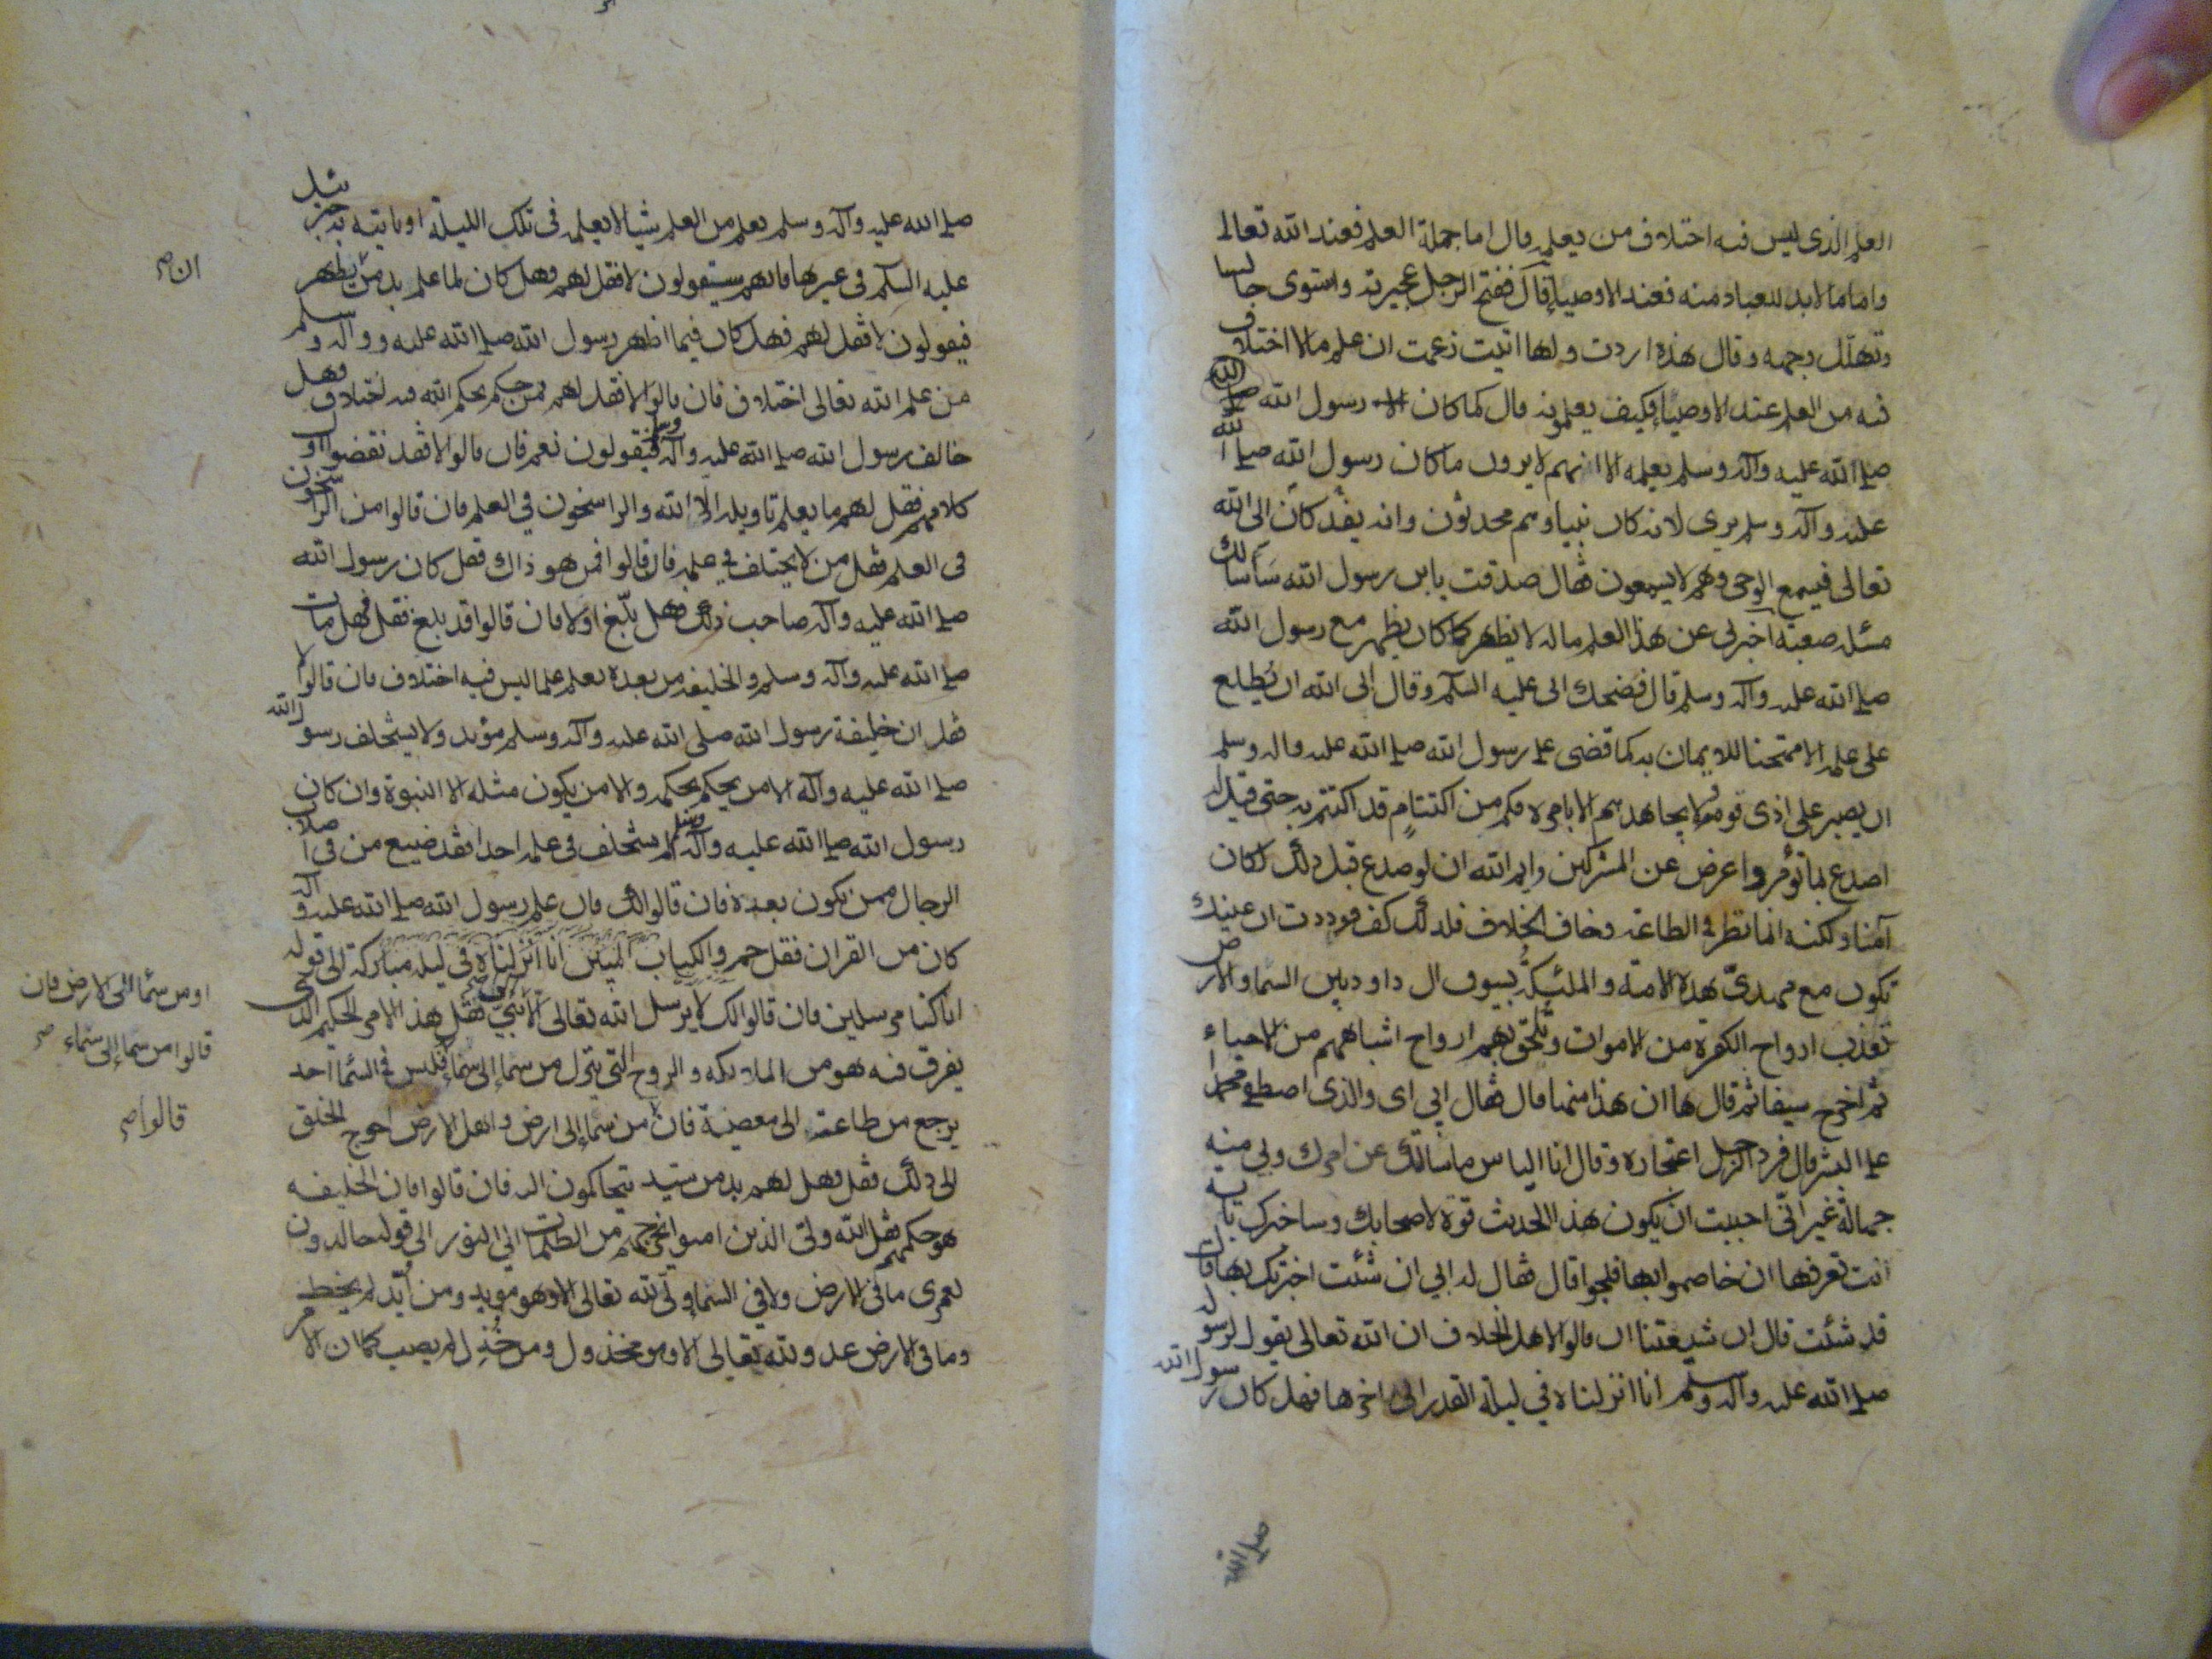 العلم الذي ليس فيه اختلاف من يعلمه قال اما جملة العلم فعند الله تعالى
واما ما لابد للعباد منه فعند الاوصياء قال ففتح الرجل عجيرته واستوى جالسا
وتهلّل وجهه وقال هذه اردت ولها اتيت زعمت ان علم مالا اختلاف
فيه من العلم عند الاوصياء فكيف يعلمونه قال كما كان رسول الله صلى الله
صلى الله عليه وآله وسلم يعلمه الا انهم لا يرون ما كان رسول الله صلى الله
عليه وآله وسلم يرى لانه كان نبيا وهم محدثون وانه يفد كان الى الله
تعالى فيسمع الوحى وهم لا يسمعون فقال صدقت يابن رسول الله سأسالك
مسئلة صعبة اخبرني عن هذا العلم ماله لا يظهر كما كان يظهر مع رسول الله
صلى الله عليه وآله وسلم قال فضحك ابى عليه السلام وقال ابى الله ان يُطلع
على علمه الا ممتحنا للايمان به كما قضى على رسول الله صلى الله عليه واله وسلم
ان يصبر على اذى قومه ولا يجاهدهم الا بامره فكم من اكتتامٍ قد اكتتم به حتى قيل له
اصدع بما تؤمر واعرض عن المشركين وايم الله ان لو صدع قبل ذلك لكان
آمنا ولكنه انما نظر في الطاعة وخاف الخلاف فلذلك كف فوددت ان عينك
تكون مع مهدىّ هذه الامة والملئكة بسيوف ال داود بين السماء والارض
تعذب ارواح الكفرة من الاموات وتلحق بهم ارواح اشباههم من الاحياء
ثم اخرج سيفا ثم قال ها ان هذا منها قال فقال ابي اى والذي اصطفى محمدا
على البشر قال فرد الرجل اعتجاره وقال انا الياس ما سالتك عن امرك وبي منه
جهالة غير انّى احببت ان يكون هذا الحديث قوة لاصحابك وساخبرك باية
انت تعرفها ان خاصموا بها فلجوا قال فقال له ابي ان شئت اخبرتك بها قال
قد شئت قال ان شيعتنا ان قالوا لاهل الخلاف ان الله تعالى يقول لرسوله
صلى الله عليه وآله وسلم انا انزلناه في ليلة القدر الى اخرها فهل كان رسول الله
صلى الله
صلى الله عليه وآله وسلم يعلم من العلم شيئا لا يعلمه فى تلك الليلة او ياتيه به جبرئيل
عليه السلام فى غيرها فانهم سيقولون لا فقل لهم وهل كان لما علم بد من يظهر
ان صح
فيقولون لا فقل لهم فهل كان فيما اظهر رسول الله صلى الله عليه و وآله وسلم
من علم الله تعالى اختلاف فان قالوا لا فقل لهم فمن حكم بحكم الله فيه اختلاف فهل
خالف رسول الله صلى الله عليه وآله وسلم فيقولون نعم فان قالوا لا فقد نقضوا اول
كلامهم فقل لهم ما يعلم تاويله الا الله والراسخون في العلم فان قالوا من الراسخون
فى العلم فقل من لا يختلف في علمه فان قالوا فمن هو ذاك فقل كان رسول الله
صلى الله عليه وآله صاحب ذلك فهل بلّغ اولا فان قالوا قد بلغ فقل فهل مات
صلى الله عليه وآله وسلم والخليفة من بعده يعلم علما ليس فيه اختلاف فان قالوا لا
فقل ان خليفة رسول الله صلى الله عليه وآله وسلم مؤيد ولا يستخلف رسول الله
صلى الله عليه وآله الا من يحكم بحكمه والا من يكون مثله الا النبوة وان كان
رسول الله صلى الله عليه وآله وسلم لم يستخلف فى علمه احدا فقد ضيع من في اصلاب
الرجال ممن يكون بعده فان قالوا لك فان علم رسول الله صلى الله عليه وآله
كان من القران فقل حم والكتاب المبين انا انزلناه فى ليلة مباركة الى قوله
انا كنا مرسلين فان قالوا لك لا يرسل الله تعالى الا الى نبىّ فقل هذا الامر الحكيم الذي
يفرق فيه هو من الملائكة والروح التي تنزل من سماء الى سماء فليس في السماء احد
او من سماء الى الارض فان
قالوا من سماء الى سماء صح
يرجع من طاعة الى معصية فان من سماء الى ارض واهل الارض احوج الخلق
قالوا صح
الى ذلك فقل فهل لهم بد من سيد يتحاكمون اليه فان قالوا فان الخليفه
هو حكمهم فقل الله ولىّ الذين امنوا يخرجهم من الظلمات الى النور الى قوله خالدون
لعمرى ما في الارض ولا في السماء ولىّ لله تعالى الا وهو مؤيد ومن اُيّد لم يخطِ
وما فى الارض عدو لله تعالى الا وهو مخذول ومن خُذِل لم يصب كما ان الامر